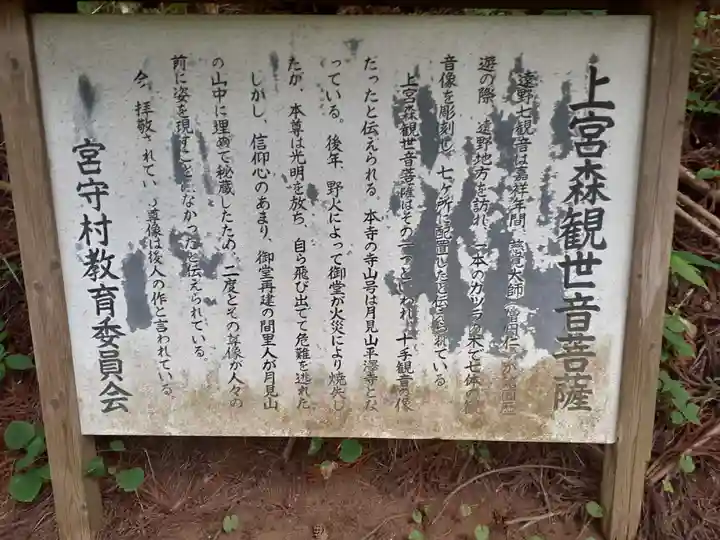 上宮森観世音菩薩
遠野七観音は嘉祥年間、慈覚大師（円仁）が諸国歴
遊の際、遠野地方を訪れ、一本のカツラの木で七体の観
音像を彫刻し、七ヶ所に配置したと伝えられている。
上宮森観世音菩薩はその一つといわれ、十手観音の像
だったと伝えられる。本寺の寺山号は月見山平澤寺とな
っている。後年、野火によって御堂が火災により焼失し
たが、本尊は光明を放ち、自ら飛び出て危難を逃れた
しかし、信仰心のあまり、御堂再建の間里人が月見山
の山中に埋めて秘蔵したため、二度とその尊像が人々の
前に姿を現すことはなかったと伝えられている。
今、拝敬されている尊像は後人の作と言われている。
宮守村教育委員会